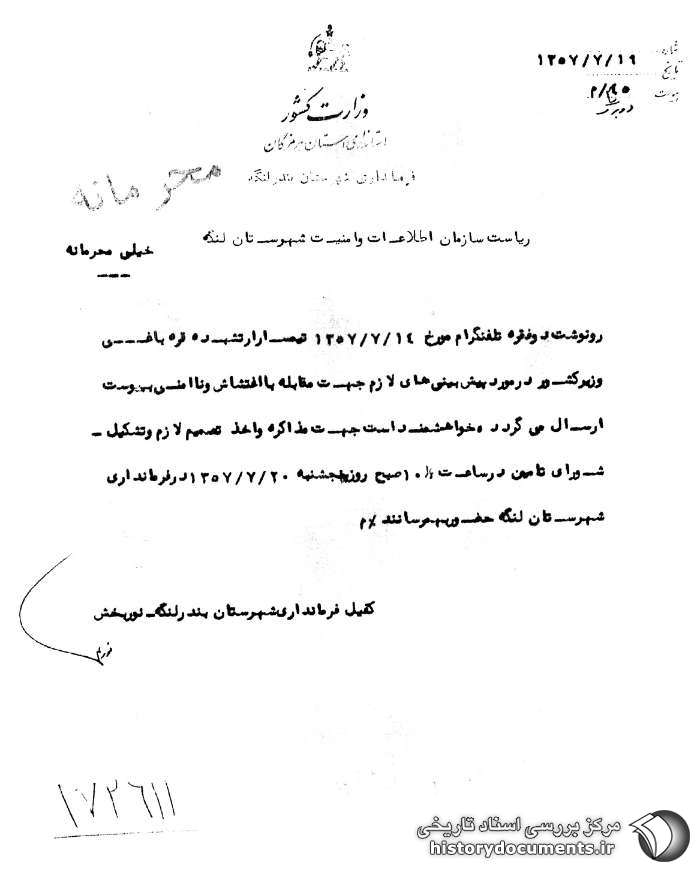 شماره
۱۳۵۷/۷/۱۹
تاریخ
پیوست
دو برگ
وزارت کشور
استانداری استان هرمزگان
فرمانداری شهرستان بندرلنگه
محرمانه
ریاست سازمان اطلاعات وامنیت شهرستان لنگه
خیلی محرمانه
رونوشت دوفقره تلفنگرام مورخ ۱۳۵۷/۷/۱٤ تیمسارارتشبد قره باغی
وزیرکشور درمورد پیش بینی های لازم جهت مقابله بااغتشاش وناامنی بپیوست
ارسال می گردد خواهشمنداست جهت مذاکره واخذ تصمیم لازم وتشکیل ـ
شورای تامین درساعت ۱۰/۵ صبح روزپنجشنبه ۱۳۵۷/۷/۲۰ درفرمانداری
شهرستان لنگه حضوربهمرسانند
کفیل فرمانداری شهرستان بندرلنگه ـ نوربخش
۱۷۲۶۱۱
مرکز بررسی اسناد تاریخی
historydocuments.ir